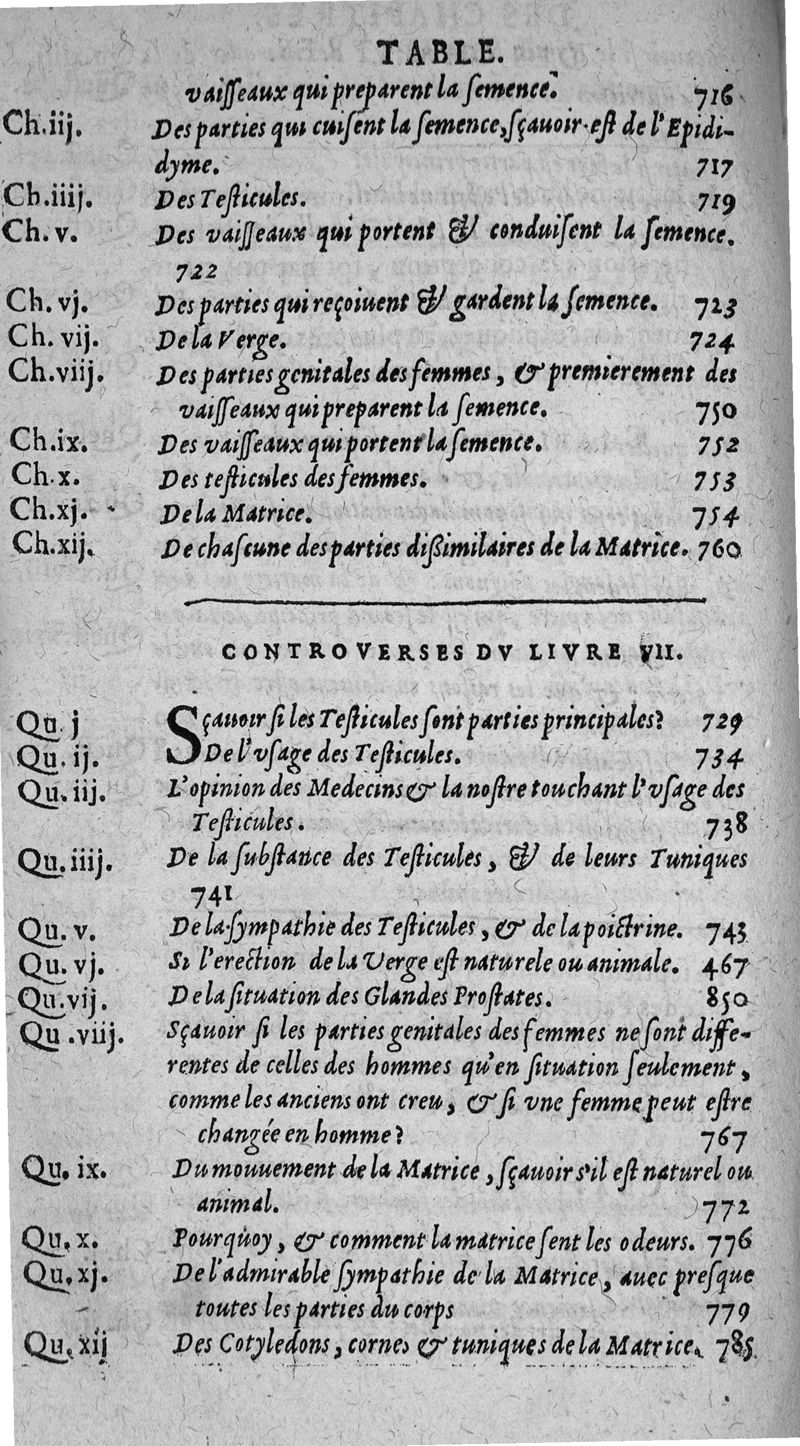 TABLE.
vaiſſeaux qui preparent la ſemence. 716
Ch.iij. Des parties qui cuiſent la ſemence, ſçauoir est de l'Epidi-
dyme. 717
Ch.iiij. Des Teſticules. 719
Ch. v. Des vaiſſeaux qui portent & conduiſent la ſemence.
722
Ch. vj. Des parties qui reçoiuent & gardent la ſemence. 723
Ch. vij. De la Verge. 724
Ch.viij. Des parties genitales des femmes, & premierement des
vaiſſeaux qui preparent la ſemence. 750
Ch.ix. Des vaiſſeaux qui portent la ſemence. 752
Ch.x. Des teſticules des femmes. 753
Ch.xj. De la Matrice. 754
Ch.xij. De chaſcune des parties dißimilaires de la Matrice. 760
CONTROVERSES DV LIVRE VII.
Qu. j Sçauoir ſi les Teſticules ſont parties principales? 729
Qu. ij. De l'vſage des Teſticules. 734
Qu.iij. L'opinion des Medecins & la noſtre touchant l'vſage des
Teſticules. 738
Qu.iiij. De la ſubſtance des Teſticules, & de leurs Tuniques
741
Qu. v. De la ſympathie des Teſticules, & de la poictrine. 743
Qu. vj. Si l'erection de la Verge est naturele ou animale. 467
Qu.vij. De la ſituation des Glandes Proſtates. 850
Qu.viij. Sçauoir ſi les parties genitales des femmes ne ſont diffe-
rentes de celles des hommes qu'en ſituation ſeulement,
comme les anciens ont creu, & ſi vne femme peut eſtre
changée en homme? 767
Qu. ix. Du mouuement de la Matrice, ſçauoir s'il eſt naturel ou
animal. 772
Qu. x. Pourquoy, & comment la matrice ſent les odeurs. 776
Qu. xj. De l'admirable ſympathie de la Matrice, auec preſque
toutes les parties du corps 779
Qu. xij Des Cotyledons, cornes & tuniques de la Matrice. 785